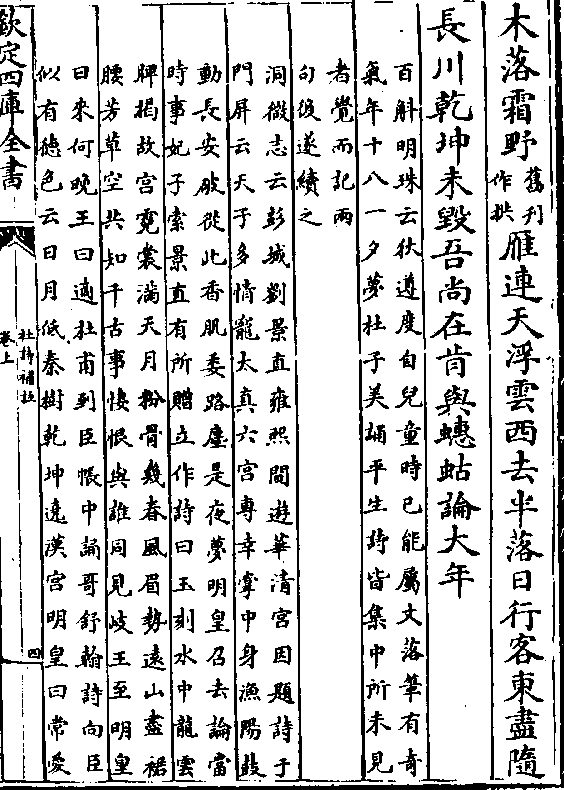 木落霜野舊刋作拱雁連天浮雲西去半落日行客東盡隨
長川乾坤未毀吾尚在肯與蟪蛄論大年
百斛明珠云狄遵度自兒童時已能屬文落筆有奇
氣年十八一夕夢杜子美誦平生詩皆集中所未見
者覺而記兩
句後遂續之
洞微志云彭城劉景直雍熙間遊華清宮因題詩于
門屏云天子多情寵太真六宮專幸掌中身漁陽鼓
動長安破從此香肌委路塵是夜夢明皇召去論當
時事妃子索景直有所贈立作詩曰玉刻水中龍雲
脾揭故宮霓裳滿天月粉骨幾春風眉勢遠山盡裙
腰芳草空共知千古事悽恨與誰同見岐王至明皇
曰來何晚王曰適杜甫到臣帳中誦哥舒翰詩向臣
似有德色云日月低秦樹乾坤遶漢宮明皇曰常愛
欽定四庫全書
杜詩補註
卷上
四